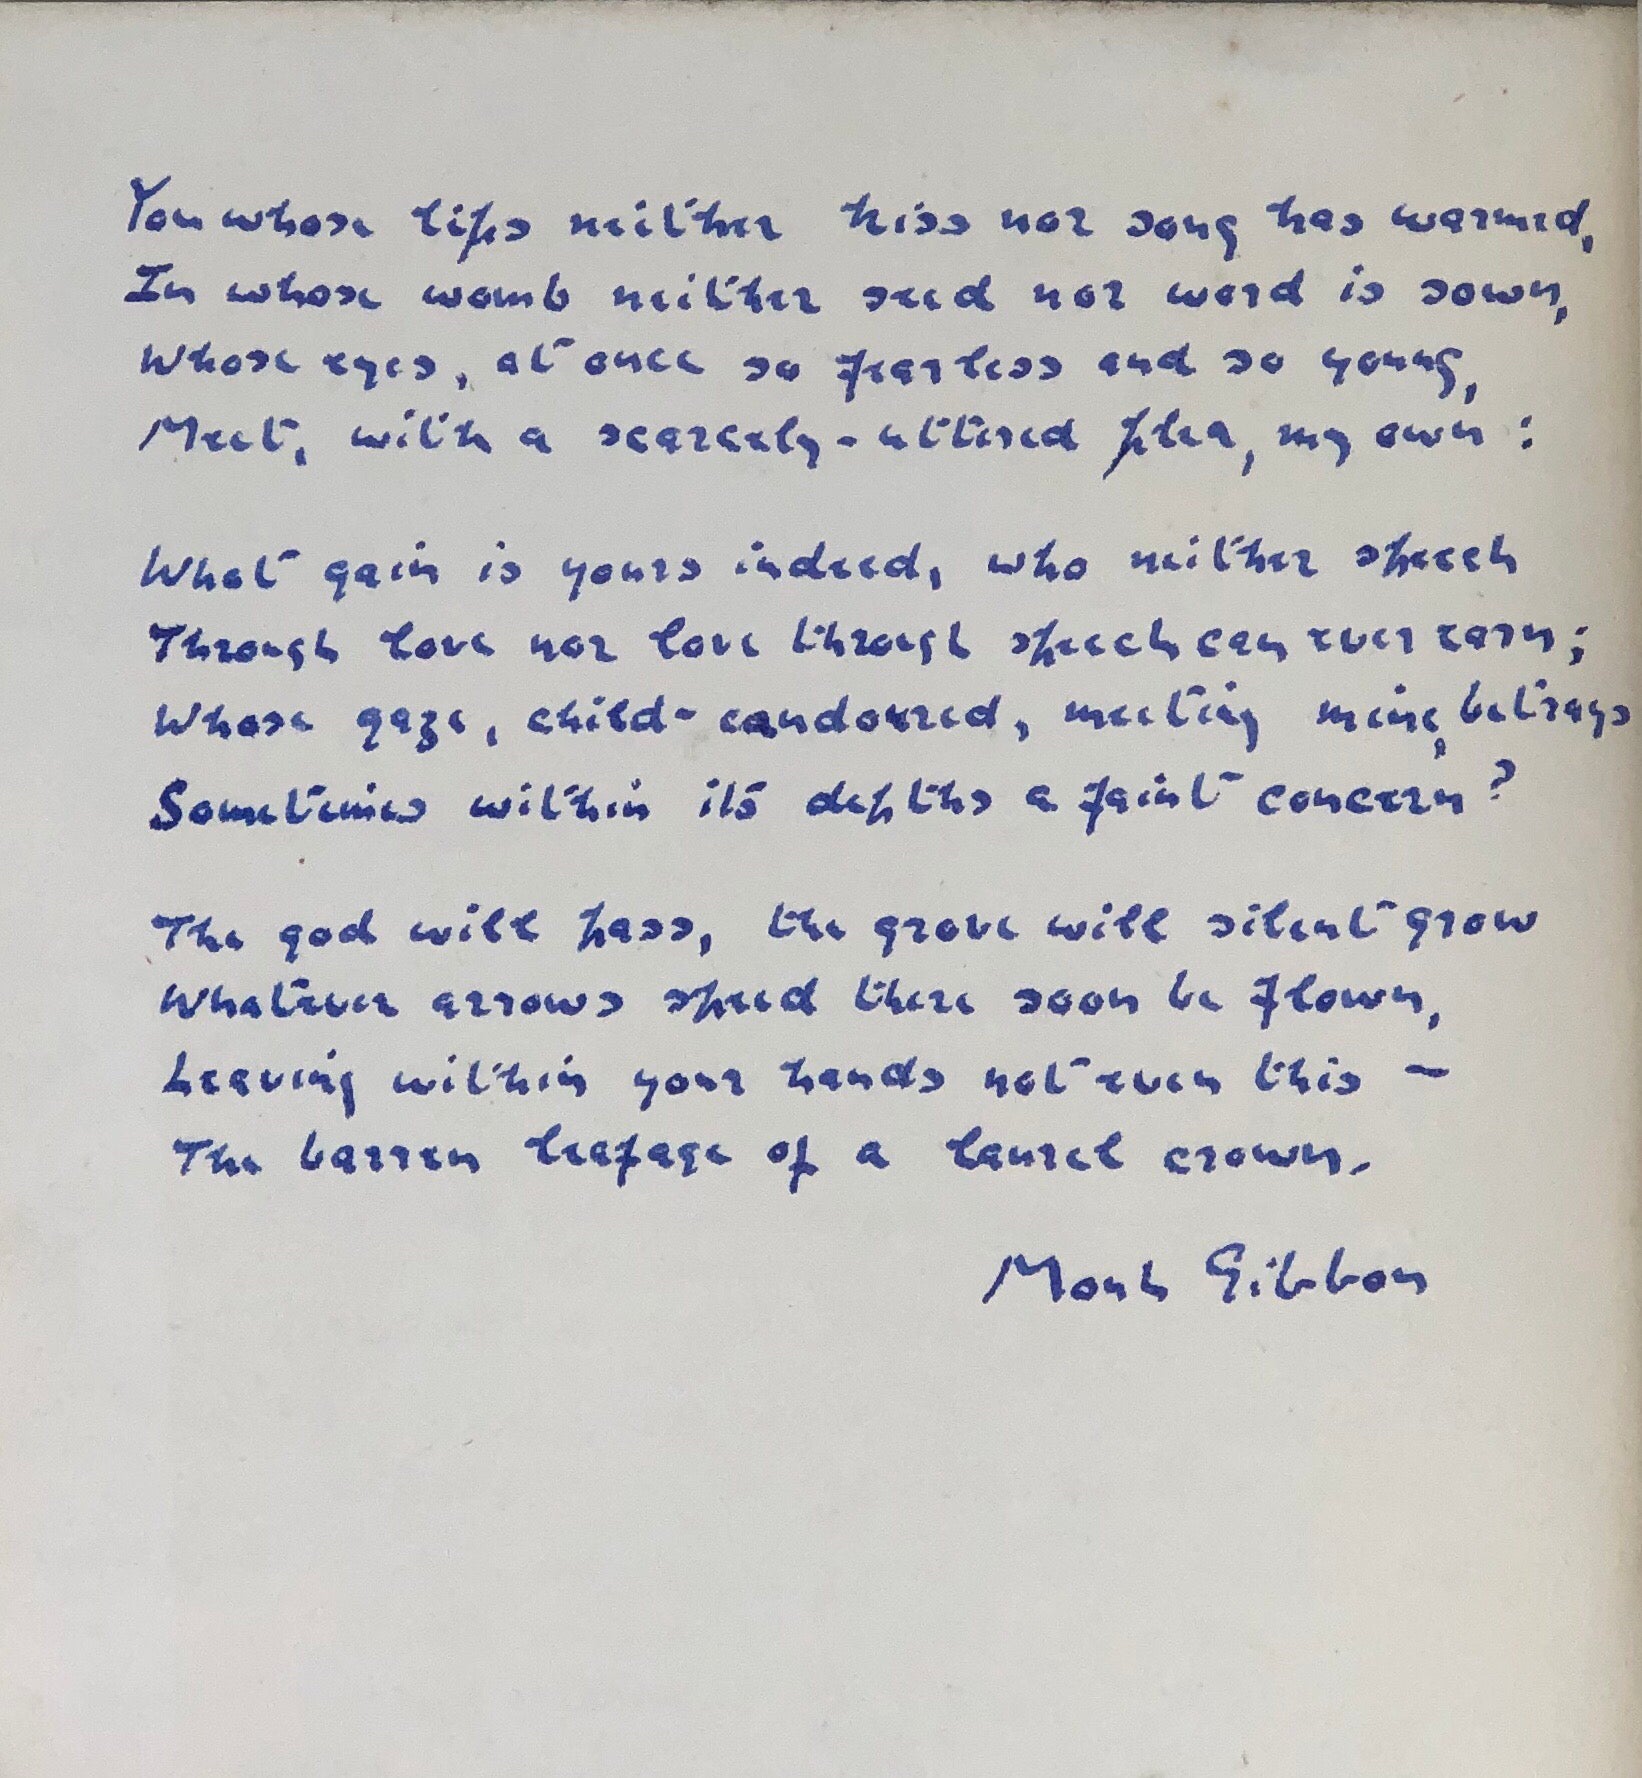 You whose lips neither kiss nor song has warmed,
In whose womb neither seed nor word is sown,
Whose eyes, at once so fearless and so young,
Meet, with a scarcely-uttered plea, my own:
What gain is yours indeed, who neither speech
Through love nor love through speech can ever earn;
Whose gaze, child-candoured, meeting mine, betrays
Sometimes within its depths a faint concern?
The god will pass, the grove will silent grow
Whatever arrows speed there soon be flown,
Leaving within your hands not even this –
The barren leafage of a laurel crown.
Monk Gibbon